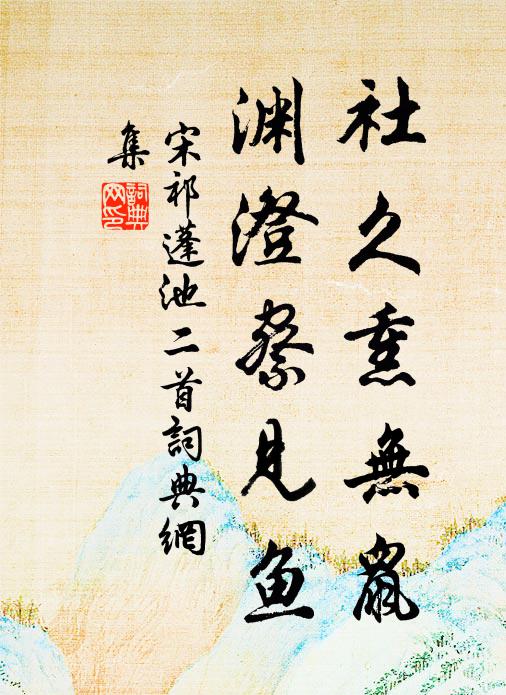 社久熏無鼠
渊澄察見鱼
宋祁蓬池二首詞典網
集
詞典
网印